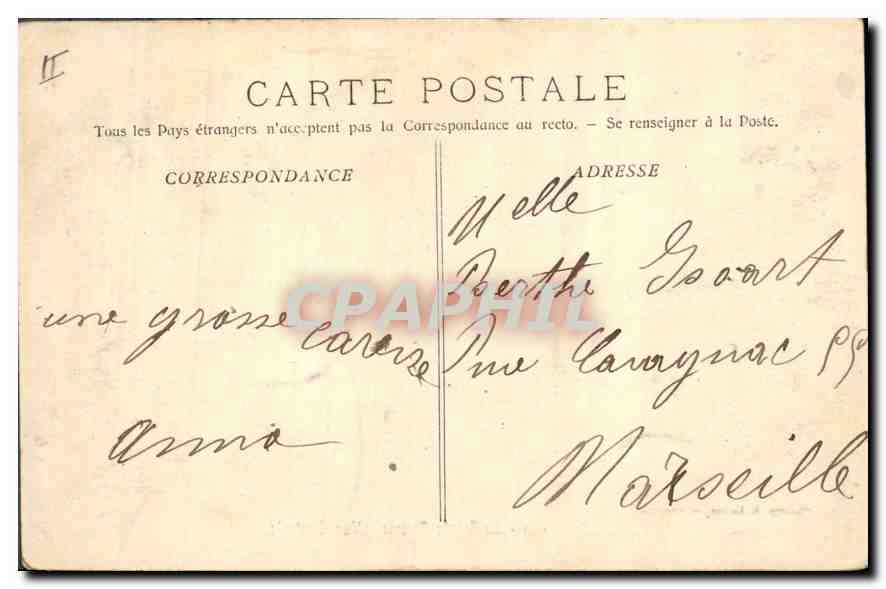 II
CARTE POSTALE
Tous les Pays étrangers n'acceptent pas la Correspondance au recto. — Se renseigner à la Poste.
CORRESPONDANCE
une grosse
Anna
ADRESSE
Melle
Berthe Isoart
Rue 55
Marseille
CPAPHIL